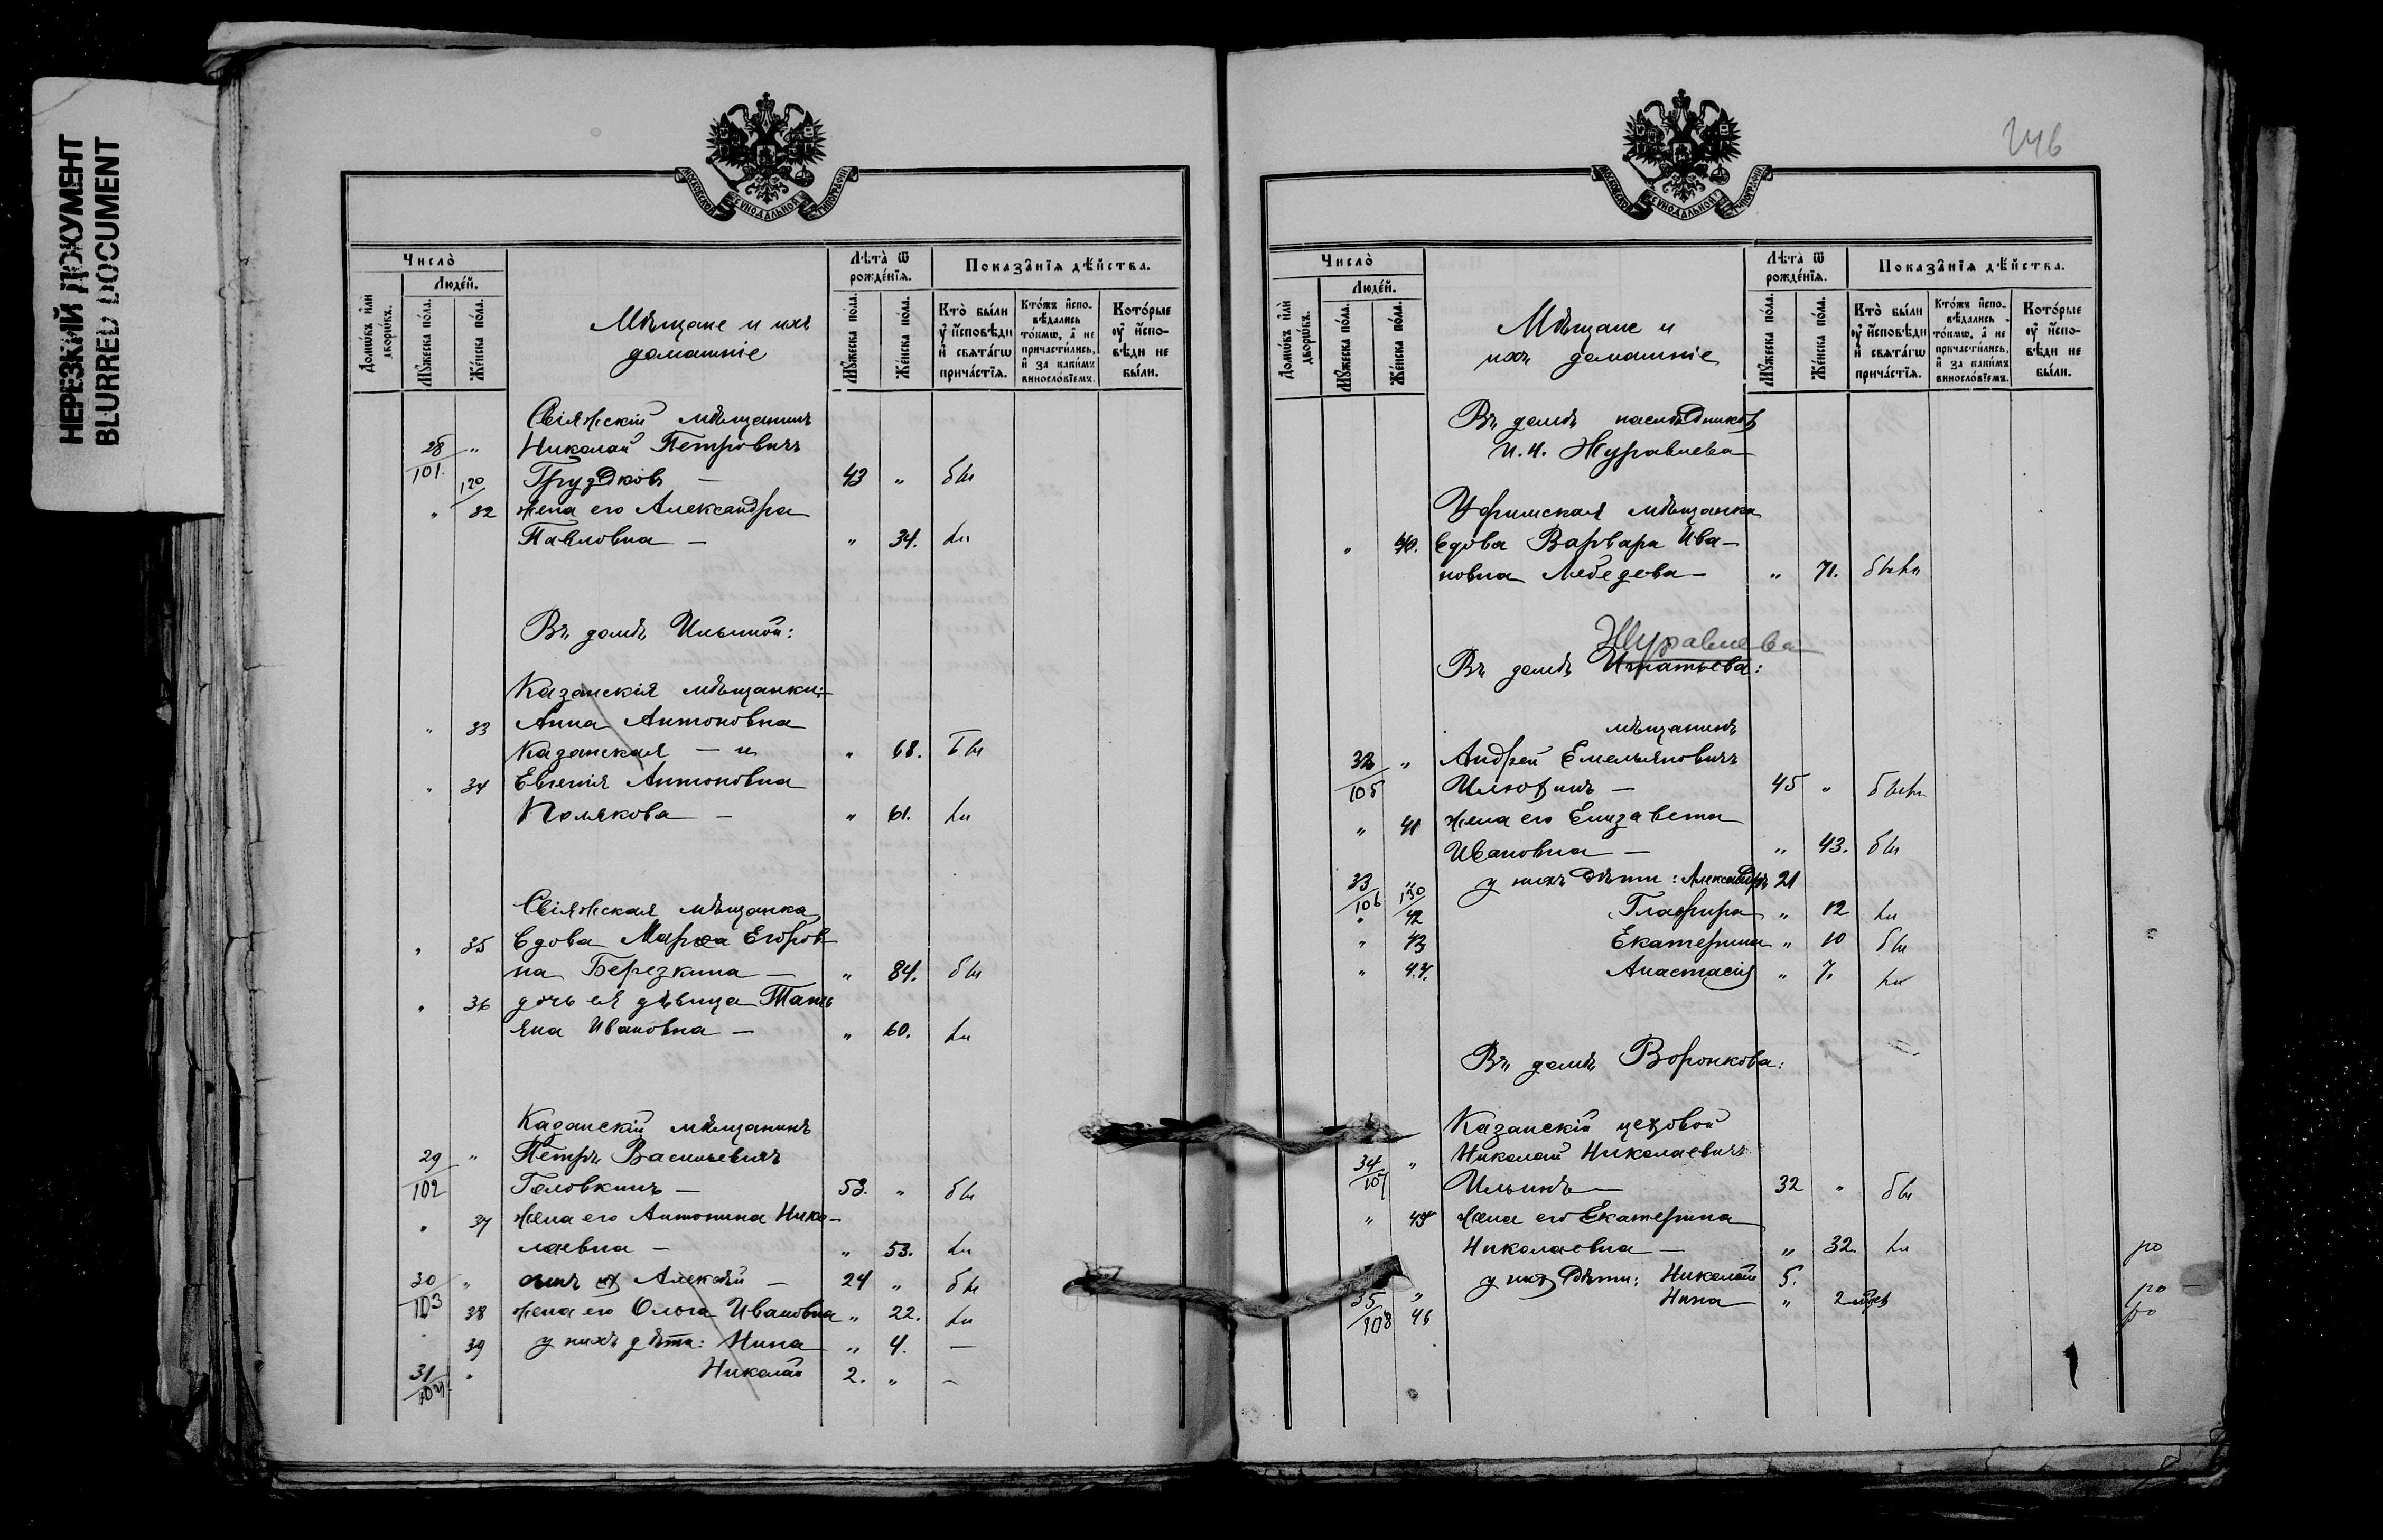 НЕРЕЗКИЙ ДОКУМЕНТ
BLURRED DOCUMENT
МОСКОВСКОЙ СѴНОДАЛЬНОЙ ТИПОГРАФІИ
Число̀
Люде́й.
Домѡ́въ и҆лѝ дворѡ́въ.
Мꙋ́жеска по́ла.
Же́нска по́ла.
Мѣщане и ихъ
домашніе
Лѣ́та ѿ
рожде́нїѧ.
Мꙋ́жеска по́ла.
Же́нска по́ла.
Показа̂нїѧ дѣ́йства.
Кто̀ бы́ли
ᲂу҆ и҆́сповѣди
и҆ свѧта́гѡ
прича́стїѧ.
Кто́жъ и҆спо-
вѣ́дались
то́кмѡ, а҆ не
причасти́лись,
и҆ за каки́мъ
винослѡ́вїемъ.
Кото́рые
ᲂу҆ и҆́спо-
вѣди не
бы́ли.
Свіяжскій мѣщанинъ
28 " Николай Петровичъ
101. 120 Груздковъ — 43 " бы
" 32 жена его Александра
Павловна — " 34. ли
Въ домѣ Ильиной:
Казанскія мѣщанки:
" 33 Анна Антоновна
Казанская — и " 68. бы
" 34 Евгенія Антоновна
Полякова — " 61. ли
Свіяжская мѣщанка
" 35 вдова Марѳа Егоров
на Березкина — " 84. бы
" 36 дочь ея дѣвица Тать
яна Ивановна — " 60. ли
Казанскій мѣщанинъ
29 " Петръ Васильевичъ
102 Головкинъ — 53. " бы
" 37 жена его Антонина Нико-
лаевна — " 53. ли
30 " сынъ их Алексѣй — 24 " бы
103 38 жена его Ольга Ивановна " 22. ли
39 у нихъ дѣти: Нина " 4. —
31 " Николай 2. " —
104.
246
МОСКОВСКОЙ СѴНОДАЛЬНОЙ ТИПОГРАФІИ
Число̀
Люде́й.
Домѡ́въ и҆лѝ дворѡ́въ.
Мꙋ́жеска по́ла.
Же́нска по́ла.
Мѣщане и
ихъ домашніе
Лѣ́та ѿ
рожде́нїѧ.
Мꙋ́жеска по́ла.
Же́нска по́ла.
Показа̂нїѧ дѣ́йства.
Кто̀ бы́ли
ᲂу҆ и҆́сповѣди
и҆ свѧта́гѡ
прича́стїѧ.
Кто́жъ и҆спо-
вѣ́дались
то́кмѡ, а҆ не
причасти́лись,
и҆ за каки́мъ
винослѡ́вїемъ.
Кото́рые
ᲂу҆ и҆́спо-
вѣди не
бы́ли.
Въ домѣ наслѣдников
И. И. Журавлева
Уфимская мѣщанка
" 40. вдова Варвара Ива-
новна Лебедева — " 71. были
Журавлева
Въ домѣ Игнатьева:
мѣщанинъ
32 " Андрей Емельяновичъ
105 Илюхинъ — 45 " были
" 41 жена его Елизавета
Ивановна — " 43. бы
33 " у нихъ дѣти: Александръ 21
106 130
" 42 Глафира " 12 ли
" 43 Екатерина " 10 бы
" 44. Анастасія " 7. ли
Въ домѣ Воронкова:
Казанскій цеховой
34 " Николай Николаевичъ
107 Ильинъ — 32 " бы
" 45 жена его Екатерина
Николаевна — " 32. ли ро
35 " у них дѣти: Николай 5. ро —
108 46 Нина " 2 мѣс ро